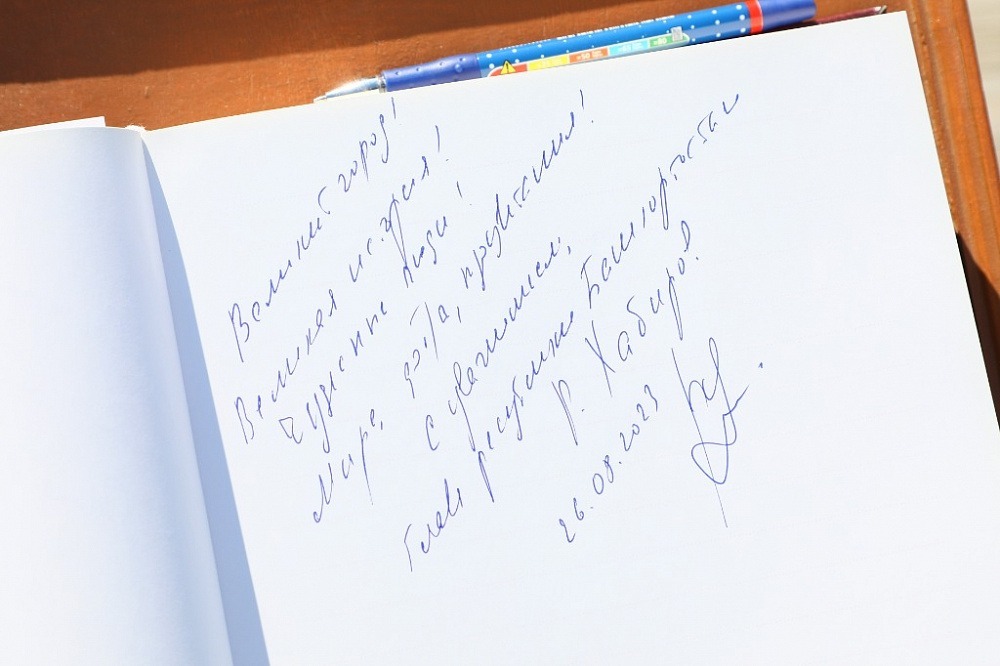 Великий город!
Великая история!
Чудесные люди!
Мира, добра, процветания!
С уважением,
Глава Республики Башкортостан
Р. Хабиров
26.08.2023